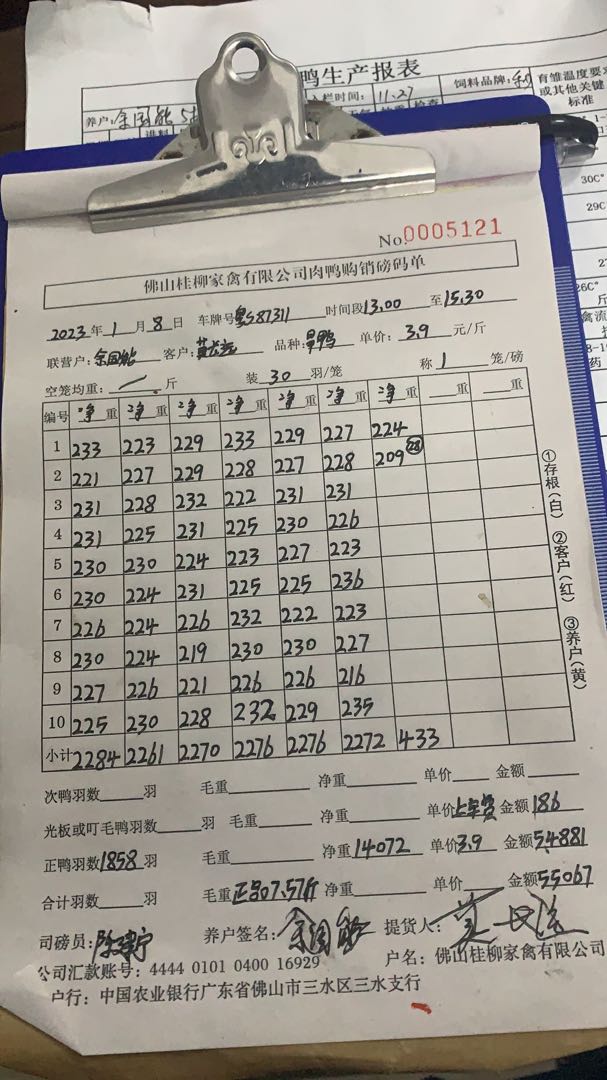 鸭生产报表
入栏时间：11.27 饲料品牌：
育雏温度要求
或其他关键
标准
养户：余国能
30C°
29C
26C°
No:0005121
佛山桂柳家禽有限公司肉鸭购销磅码单
2023年1月8日 车牌号粤S87311 时间段13.00至15.30
联营户：余国能 客户： 品种： 单价：3.9元/斤
空笼均重：/斤 装30羽/笼 称1笼/磅
编号 净重 净重 净重 净重 净重 净重 净重 重 重
1 233 223 229 233 229 227 224
2 221 227 229 228 227 228 209 28
3 231 228 232 222 231 231
4 231 225 231 225 230 226
5 230 230 224 223 227 223
6 230 224 231 225 225 236
7 226 224 226 232 222 223
8 230 224 219 230 230 227
9 227 226 221 226 226 216
10 225 230 228 232 229 235
小计 2284 2261 2270 2276 2276 2272 433
①存根(白) ②客户(红) ③养户(黄)
次鸭羽数 羽 毛重 净重 单价 金额
光板或叮毛鸭羽数 羽 毛重 净重 单价上车费 金额186
正鸭羽数1858羽 毛重 净重14072 单价3.9 金额54881
合计羽数 羽 毛重正品07.57斤 净重 单价 金额55067
司磅员： 养户签名：余国能 提货人：
公司汇款账号：4444 0101 0400 16929 户名：佛山桂柳家禽有限公司
户行：中国农业银行广东省佛山市三水区三水支行